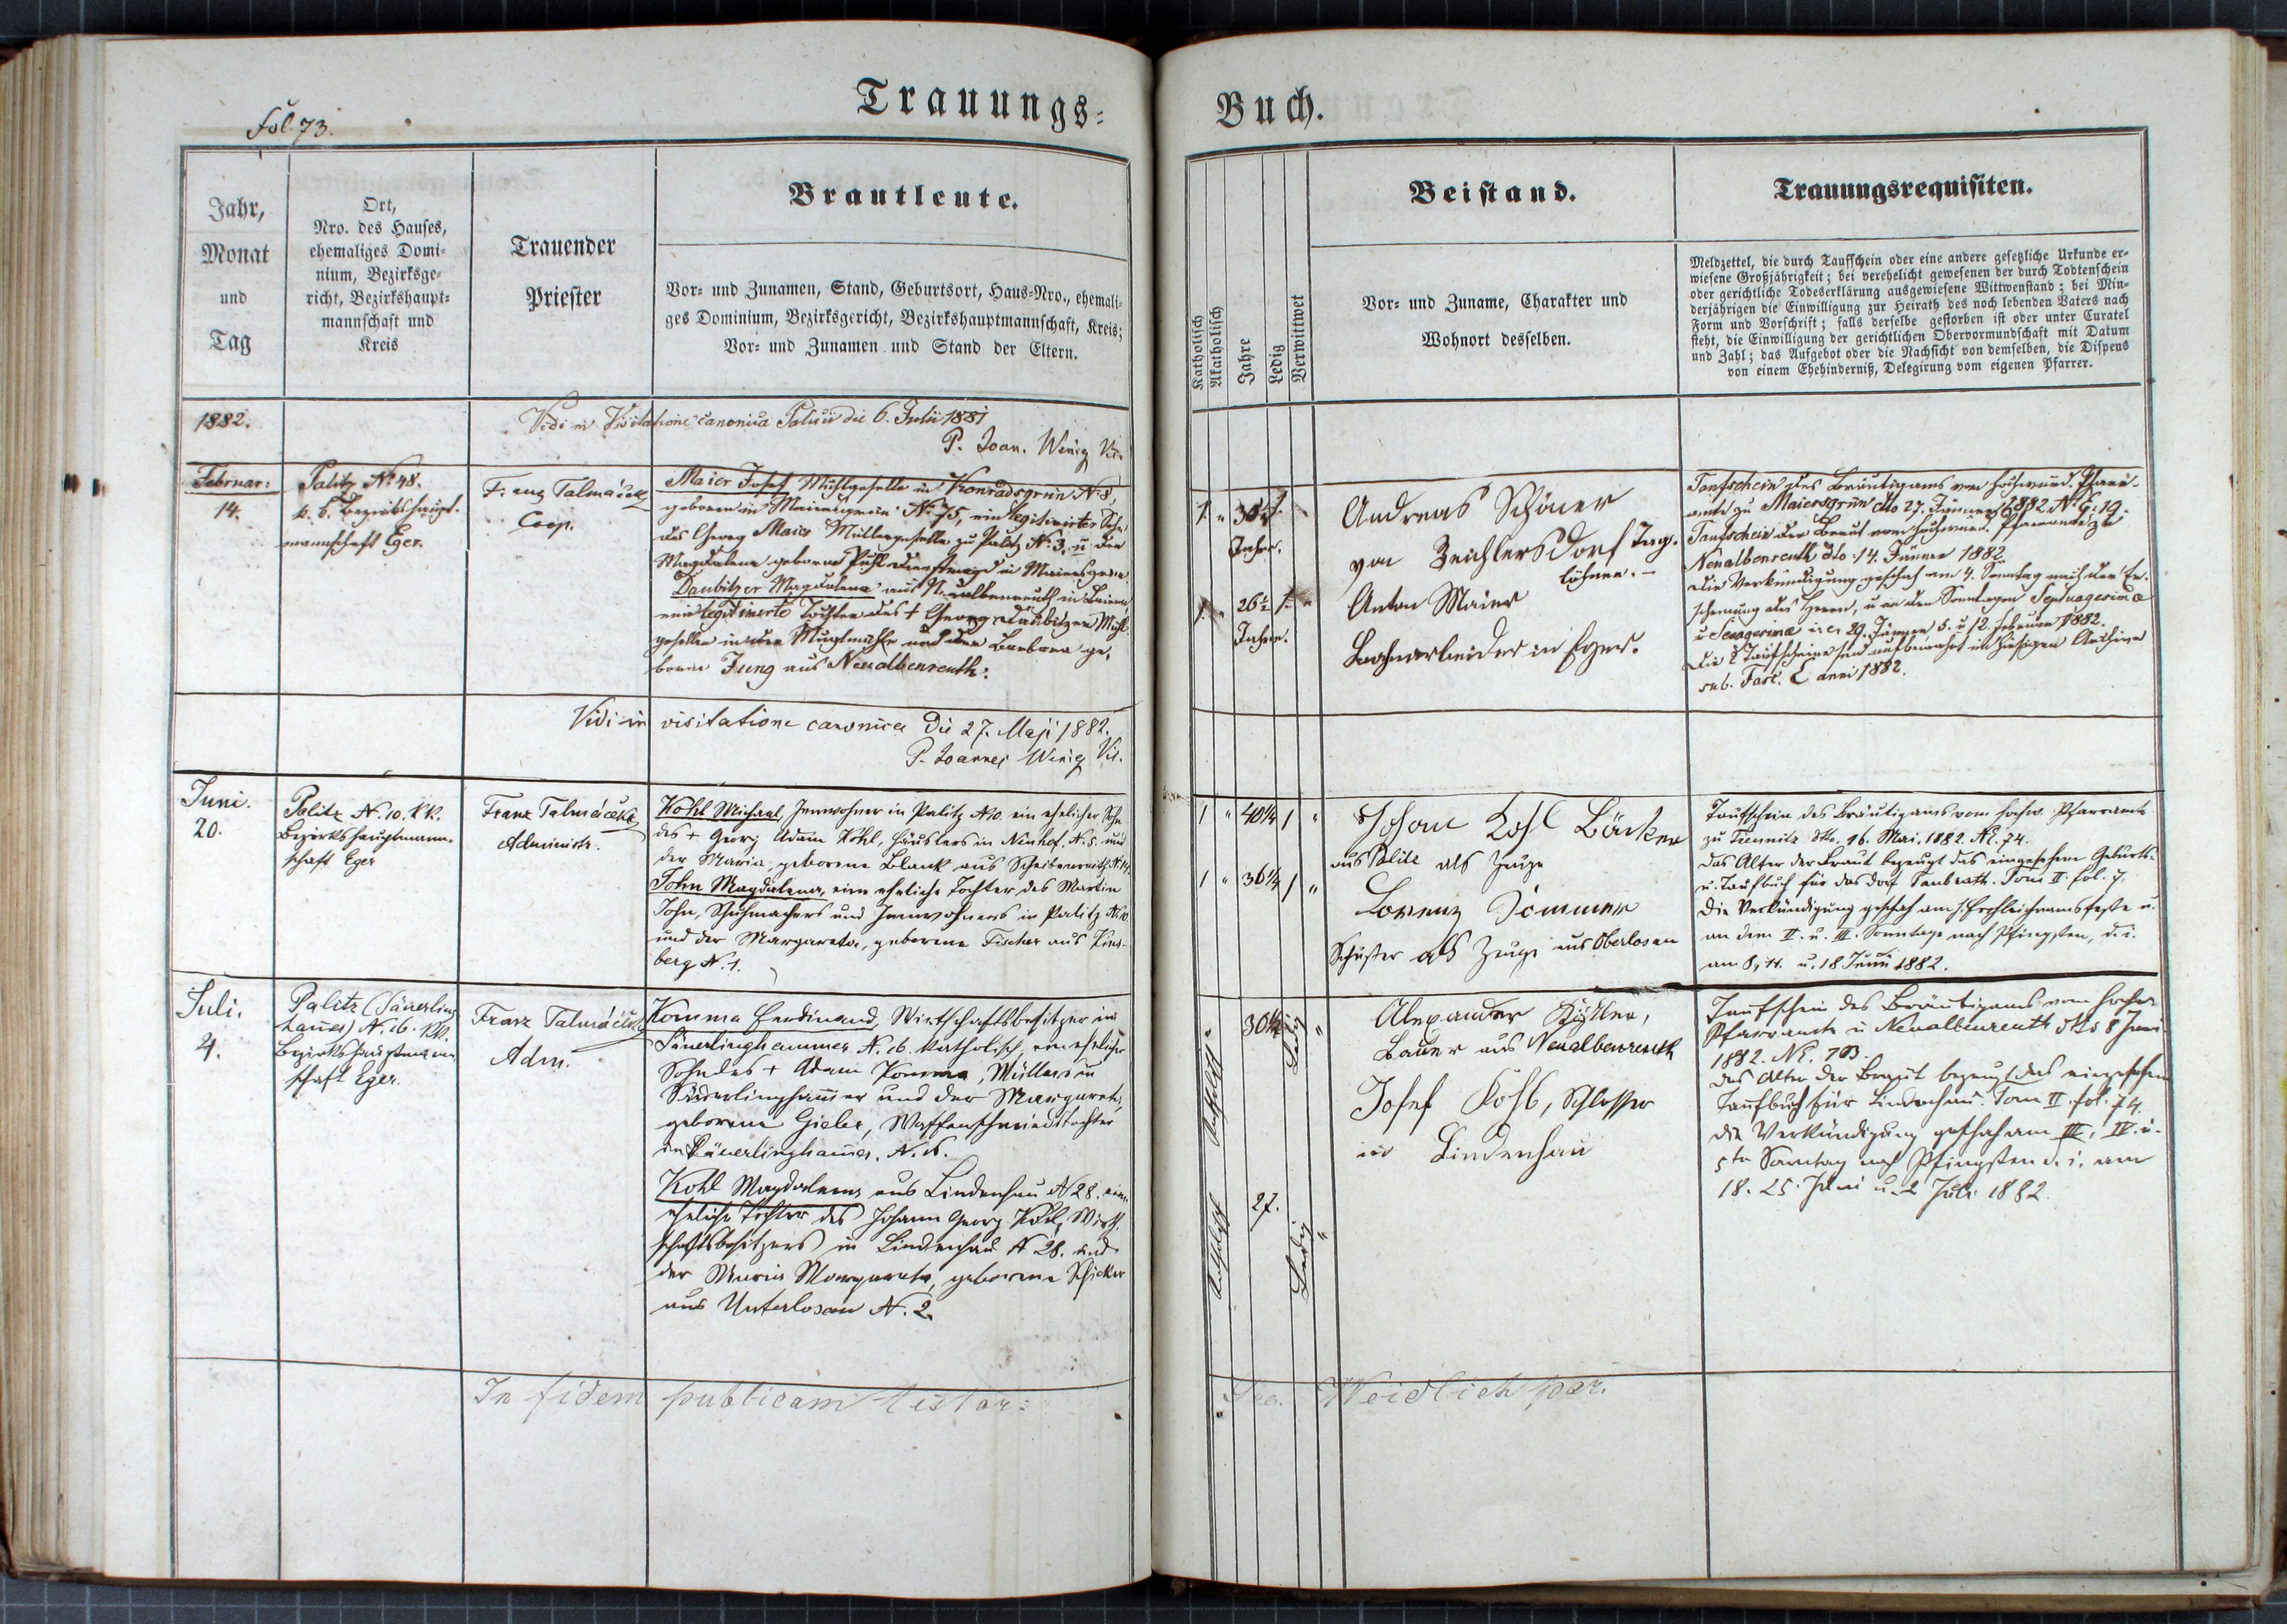 Fol. 73.
Trauungs-
Buch.
Jahr,
Monat
und
Tag
Ort,
Nro. des Hauses,
ehemaliges Domi-
nium, Bezirksge-
richt, Bezirkshaupt-
mannschaft und
Kreis
Trauender
Priester
Brautleute.
Vor- und Zunamen, Stand, Geburtsort, Haus-Nro., ehemali-
ges Dominium, Bezirksgericht, Bezirkshauptmannschaft, Kreis;
Vor- und Zunamen und Stand der Eltern.
Katholisch
Akatholisch
Jahre
Ledig
Verwittwet
Beistand.
Vor- und Zuname, Charakter und
Wohnort desselben.
Trauungsrequisiten.
Meldzettel, die durch Taufschein oder eine andere gesetzliche Urkunde er-
wiesene Großjährigkeit; bei verehelicht gewesenen der durch Todtenschein
oder gerichtliche Todeserklärung ausgewiesene Wittwenstand; bei Min-
derjährigen die Einwilligung zur Heirath des noch lebenden Vaters nach
Form und Vorschrift; falls derselbe gestorben ist oder unter Curatel
steht, die Einwilligung der gerichtlichen Obervormundschaft mit Datum
und Zahl; das Aufgebot oder die Nachsicht von demselben, die Dispens
von einem Ehehinderniß, Delegirung vom eigenen Pfarrer.
1882.
Vidi in Visitatione canonica die 6. Julii 1881
P. Joan. Wenig Vic.
Februar:
14.
Palitz No. 48.
k. k. Bezirkshaupt-
mannschaft Eger.
Franz Talmáček
Coop.
Maier Josef Mühlgeselle in Konradsgrün N. 8,
geboren in Maiersgrün No. 75, ein legitimirter Sohn
des Georg Maier Müllergeselle zu Palitz No. 3. u der
Magdalena geborne Dienstmagd in Maiersgrün
Daubitzer Magdalena aus Neualbenreuth in Baiern,
eine legitimirte Tochter des + Georg Daubitzer Mühl-
gesellen in der und der Barbara ge-
borene Jung aus Neualbenreuth.
1. " 30 1/2 1.
Jahre.
1. " 26 1/2 1. "
Jahre.
Andreas Schöner
von Zeichlersdorf Tag-
löhner. –
Anton Maier
Bahnarbeiter in Eger.
Taufschein des Bräutigams vom hochwürd. Pfarr-
amte zu Maiersgrün dto 27. Jänner 1882 No. E: 19.
Taufschein der Braut vom hochwürd. Pfarramte zu
Neualbenreuth dto: 14. Jänner 1882.
Die Verkündigung geschah am 4. Sonntag nach der Er-
scheinung des Herrn, u an den Sonntagen Septuagesima
u Sexagesima i. e. 29. Jänner, 5. u 12. Februar 1882.
Die 2 Taufscheine sind aufbewahrt im hiesigen Archive
sub. Fasc. C anni 1882.
Vidi in visitatione canonica die 27. Maji 1882.
P. Joannes Wenig Vic.
Juni.
20.
Palitz N. 10. k.k.
Bezirkshauptmann-
schaft Eger
Franz Talmáček
Administr.
Kohl Michael, Inwohner in Palitz N 10 ein ehelicher Sohn
des + Georg Adam Kohl, Häuslers in Neuhof, N. 5. und
der Maria, geborene Blank aus Scheibenreuth N. 14.
John Magdalena, eine eheliche Tochter des Martin
John, Schuhmachers und Inwohners in Palitz N. 10
und der Margareta, geborene Fischer aus Kins-
berg N. 1.
1 " 40 1/4 1 "
1 " 36 1/4 1 "
Johann Kohl Bäcker
aus Palitz als Zeuge
Lorenz Sommer
Schuster als Zeuge aus Oberlosau
Taufschein des Bräutigams vom hochw. Pfarramte
zu dto. 16. Mai. 1882. No. 74.
Das Alter der Braut bezeugt das eingesehene Geburts-
u. Taufbuch für das Dorf Taubrath. Tom II. fol. 7.
Die Verkündigung geschah am h. Frohleichnamsfeste u.
an dem II. u. III. Sonntage nach Pfingsten, d. i.
am 8, 11. u. 18 Juni 1882.
Juli.
4.
Palitz (Säuerling-
hamer) N. 16. k.k.
Bezirkshauptmann-
schaft Eger.
Franz Talmáček
Adm.
Komma Ferdinand, Wirtschaftsbesitzer in
Säuerlinghammer N. 16. katholisch, ein ehelicher
Sohn des + Adam Komma, Müllers in
Säuerlinghamer und der Margareta,
geborene Gieler, Waffenschmiedstochter
in Säuerlinghamer. N. 16.
Kohl Magdalena aus Lindenhau N 28. eine
eheliche Tochter des Johann Georg Kohl, Wirth-
schaftsbesitzers in Lindenhau N 28. und
der Maria Margareta, geborene Schicker
aus Unterlosau N. 2.
Katholisch " 30 1/2 Ledig "
Katholisch 27. Ledig "
Alexander
Bauer aus Neualbenreuth
Josef Kohl, Schlosser
in Lindenhau
Taufschein des Bräutigams vom hochw.
Pfarramte in Neualbenreuth dto 8 Juni
1882. No. 703.
Das Alter der Braut bezeugt das eingesehene
Taufbuch für Lindenhau. Tom II. fol. 74.
Die Verkündigung geschah am III, IV. u.
5ten Sonntag nach Pfingsten d. i. am
18. 25. Juni u. 2 Juli 1882.
In fidem publicam testor:
Weidlich par.